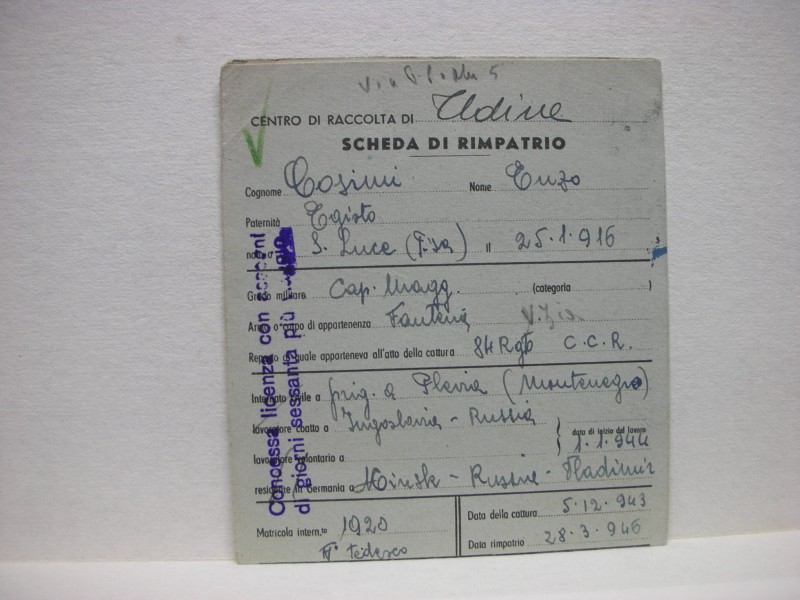 CENTRO DI RACCOLTA DI Udine
SCHEDA DI RIMPATRIO
Cognome Cosimi Nome Enzo
Paternità Egisto
nato a S. Luce (Pisa) il 25.1.916
Grado militare Cap. Magg. (categoria )
Arma o corpo di appartenenza Fanteria
Reparto al quale apparteneva all'atto della cattura 84 Rgto C.C.R.
Internato civile a prig. a Plevia (Montenegro)
lavoratore coatto a Jugoslavia - Russia
data di inizio del lavoro
1.1.944
lavoratore volontario a
residente in Germania a Minsk - Russia - Vladimir
Matricola intern.to 1920
N° Tedesco
Data della cattura 5.12.943
Data rimpatrio 28.3.946
Concessa licenza con assegni
di giorni sessanta più